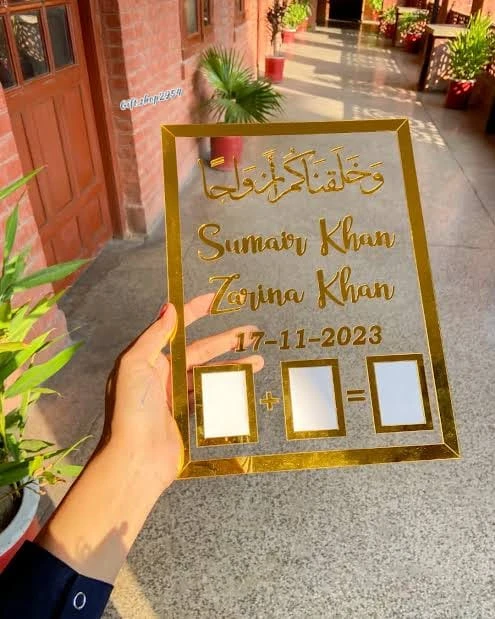 Gift.shop2954
وَخَلَقْنَاكُمْ أَزْوَاجًا
Sumair Khan
Zarina Khan
17-11-2023
+ =